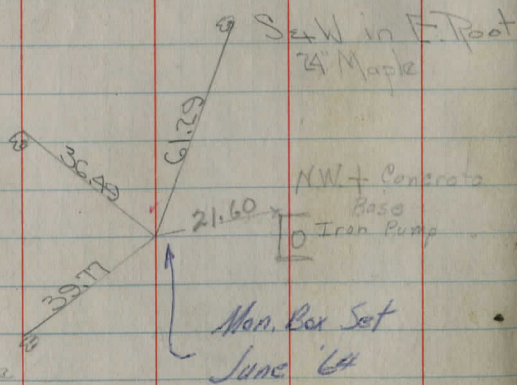 S & W in E. Root
24" Maple
61.29
36.49
21.60
N.W. + Concrete
Base
Iron Pump
39.77
Mon. Box Set
June '64